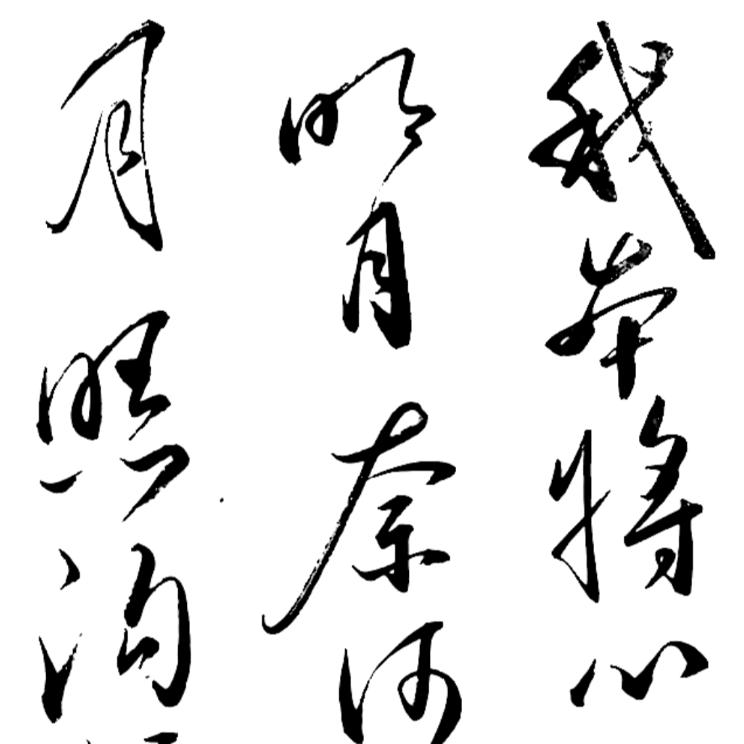 我本將心
明月奈何
月照沟